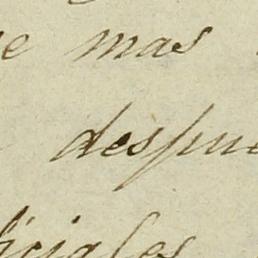 e mas
despue
iciales